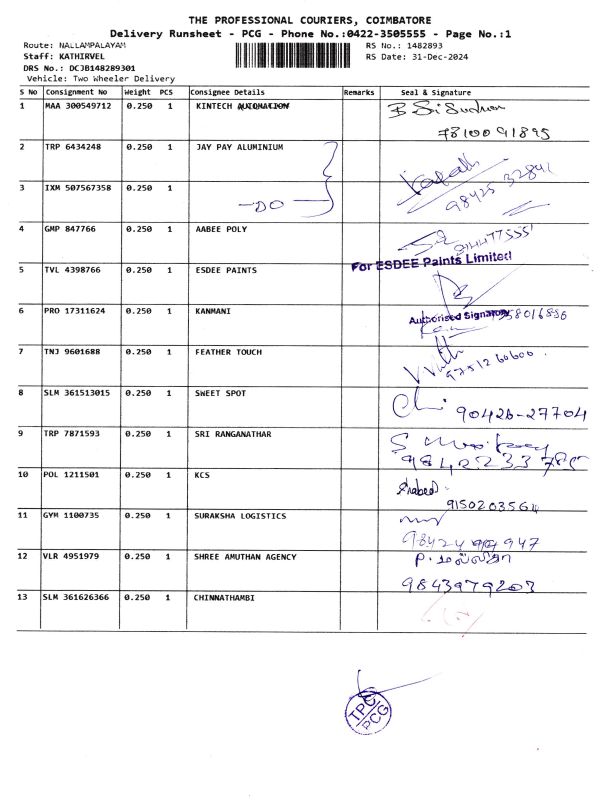 THE PROFESSIONAL COURIERS, COIMBATORE
Delivery Runsheet - PCG - Phone No.:0422-3505555 - Page No.:1
Route: NALLAMPALAYAM RS No.: 1482893
Staff: KATHIRVEL RS Date: 31-Dec-2024
DRS No.: DCJB148289301
Vehicle: Two Wheeler Delivery
S No Consignment No Weight PCS Consignee Details Remarks Seal & Signature
1 MAA 300549712 0.250 1 KINTECH AUTOMATION
7810091895
2 TRP 6434248 0.250 1 JAY PAY ALUMINIUM
98425 32841
3 IXM 507567358 0.250 1
-DO-
4 GMP 847766 0.250 1 AABEE POLY
For ESDEE Paints Limited
5 TVL 4398766 0.250 1 ESDEE PAINTS
Authorised Signatory
6 PRO 17311624 0.250 1 KANMANI
7 TNJ 9601688 0.250 1 FEATHER TOUCH
97512 60600
8 SLM 361513015 0.250 1 SWEET SPOT
90426-27704
9 TRP 7871593 0.250 1 SRI RANGANATHAR
10 POL 1211501 0.250 1 KCS
9150203564
11 GYM 1100735 0.250 1 SURAKSHA LOGISTICS
12 VLR 4951979 0.250 1 SHREE AMUTHAN AGENCY
9843979203
13 SLM 361626366 0.250 1 CHINNATHAMBI
TPC
PCG